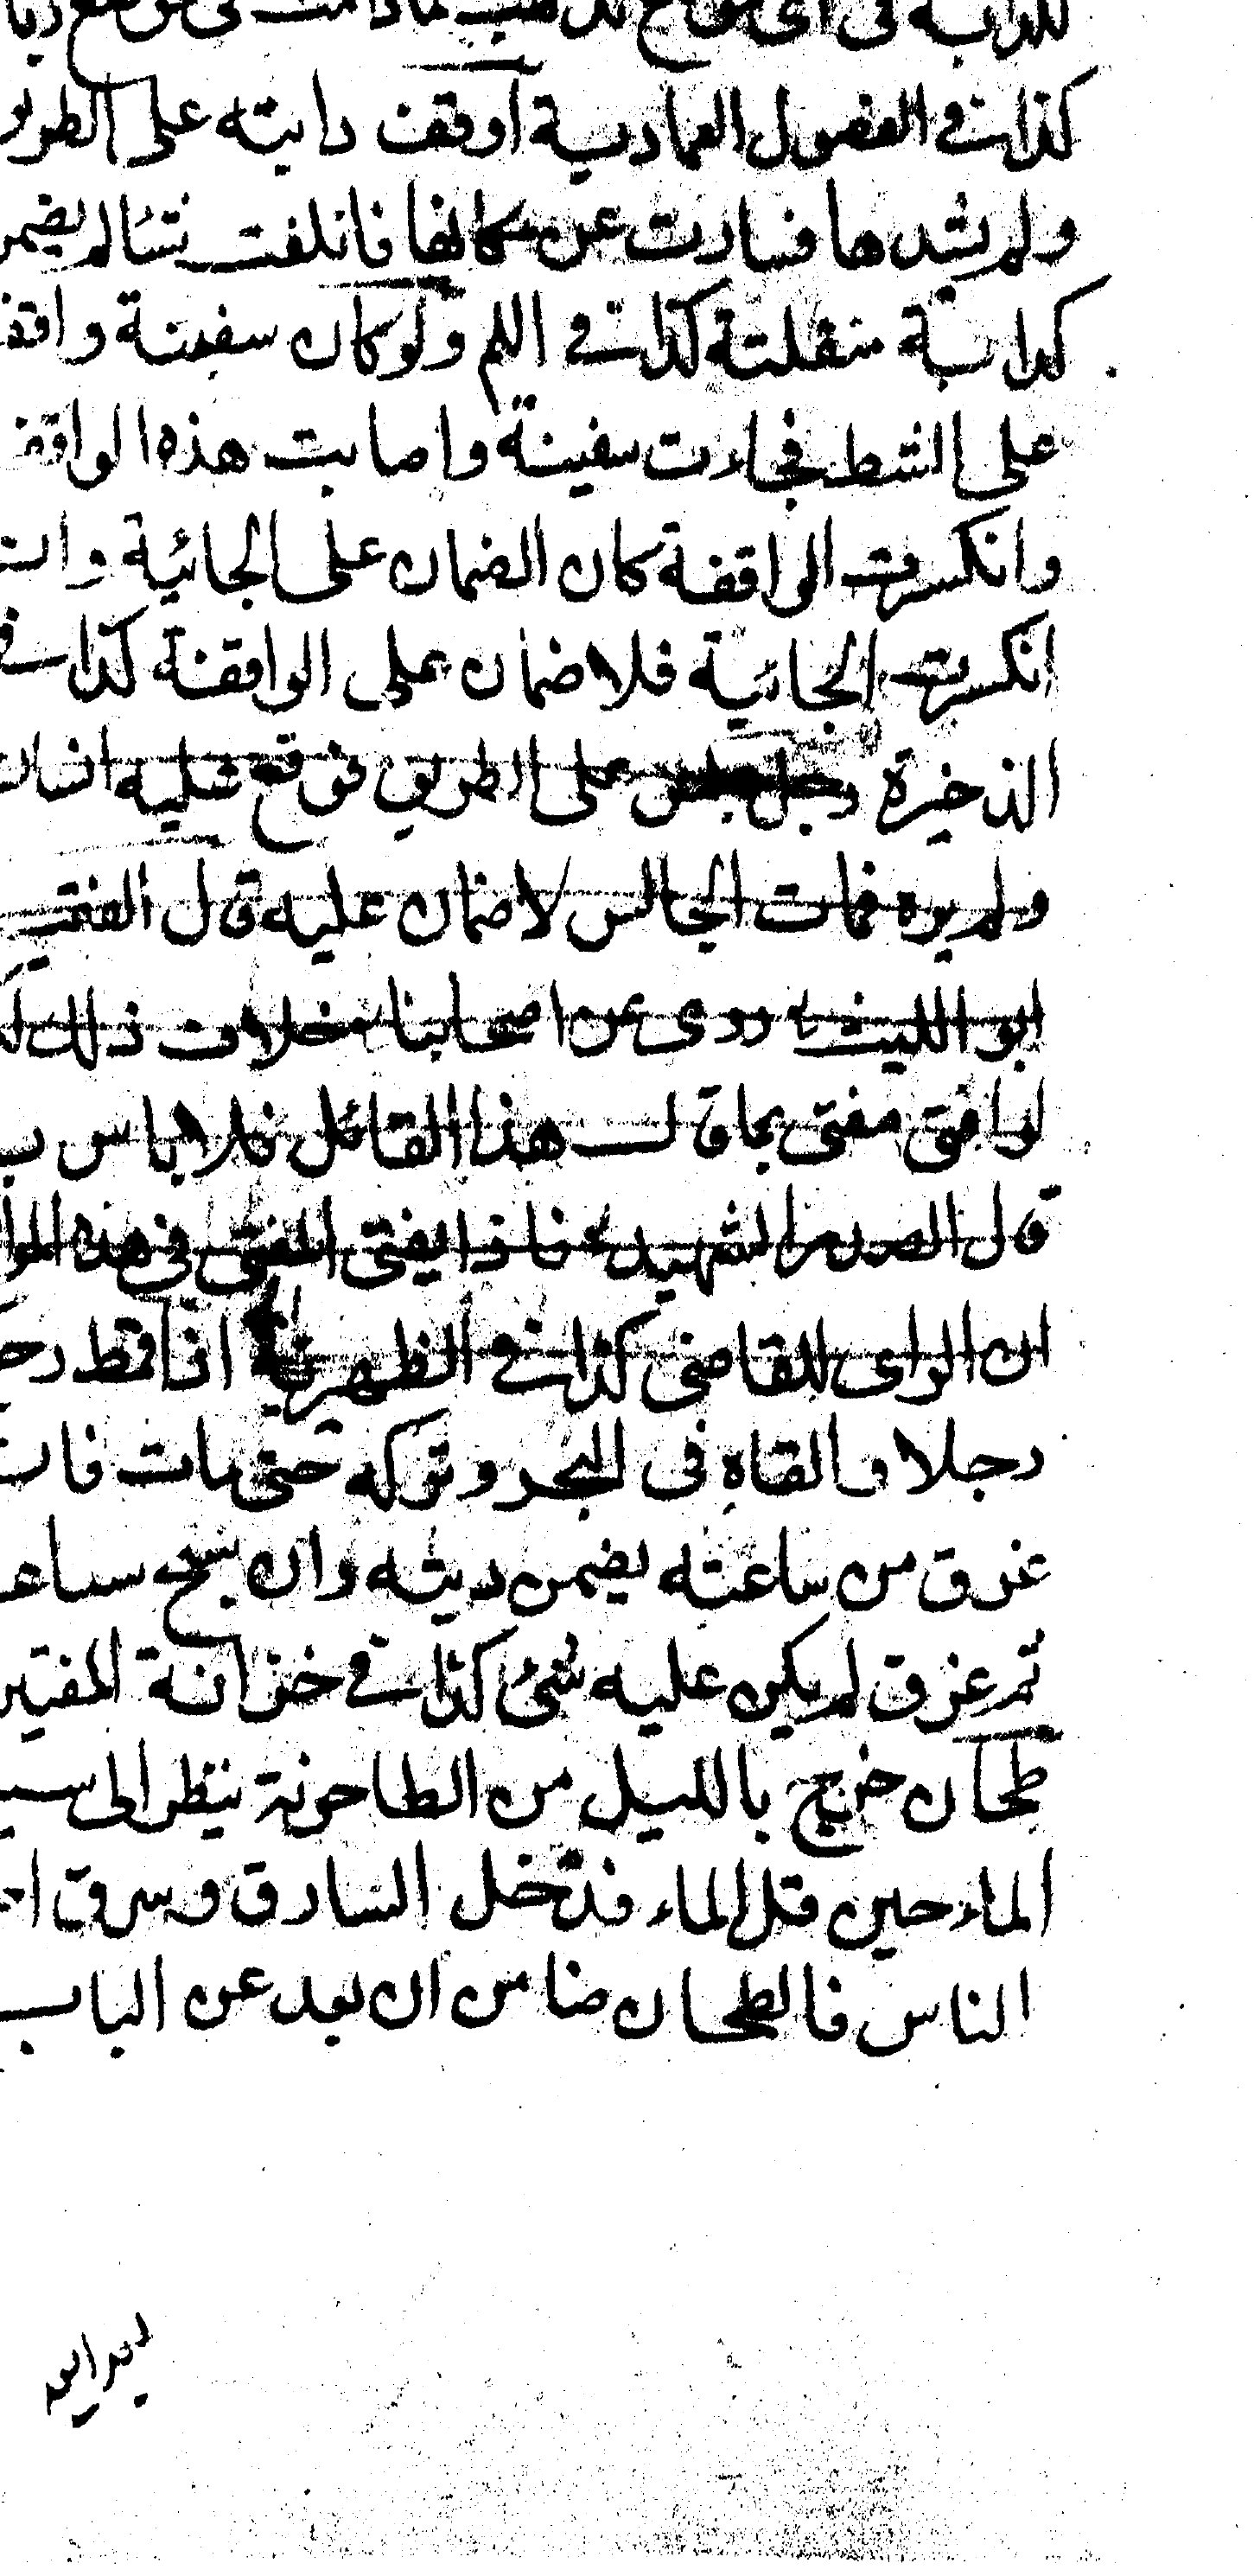 للدابة في اي موضع
كذا في الفصول العمادية اوقف دابته على الطريق
ولم يشدها فسارت عن مكانها فاتلفت شيئا لم يضمن
كدابة منفلتة كذا في ولو كان سفينة واقفة
على الشط فجاءت سفينة واصابت هذه الواقفة
وانكسرت الواقفة كان الضمان على الجائية وان
انكسرت الجائية فلا ضمان على الواقفة كذا في
الذخيرة رجل جلس على الطريق فوقع عليه انسان
ولم يره فمات الجالس لا ضمان عليه قال الفقيه
ابو الليث روى عن اصحابنا خلاف ذلك
لو افتى مفتى بما قال هذا القائل فلا باس
قال الصدر الشهيد فاذا يفتى المفتى في هذه
ان الراى للقاضى كذا في الظهيرية اذا قمط
رجلا والقاه في البحر وتركه حتى مات فان
غرق من ساعته يضمن ديته وان سبح ساعة
ثم غرق لم يكن عليه شئ كذا في خزانة المفتين
طحان خرج بالليل من الطاحونة ينظر الى
الماء حين قل الماء فدخل السارق وسرق
الناس فالطحان ضامن ان بعد عن الباب